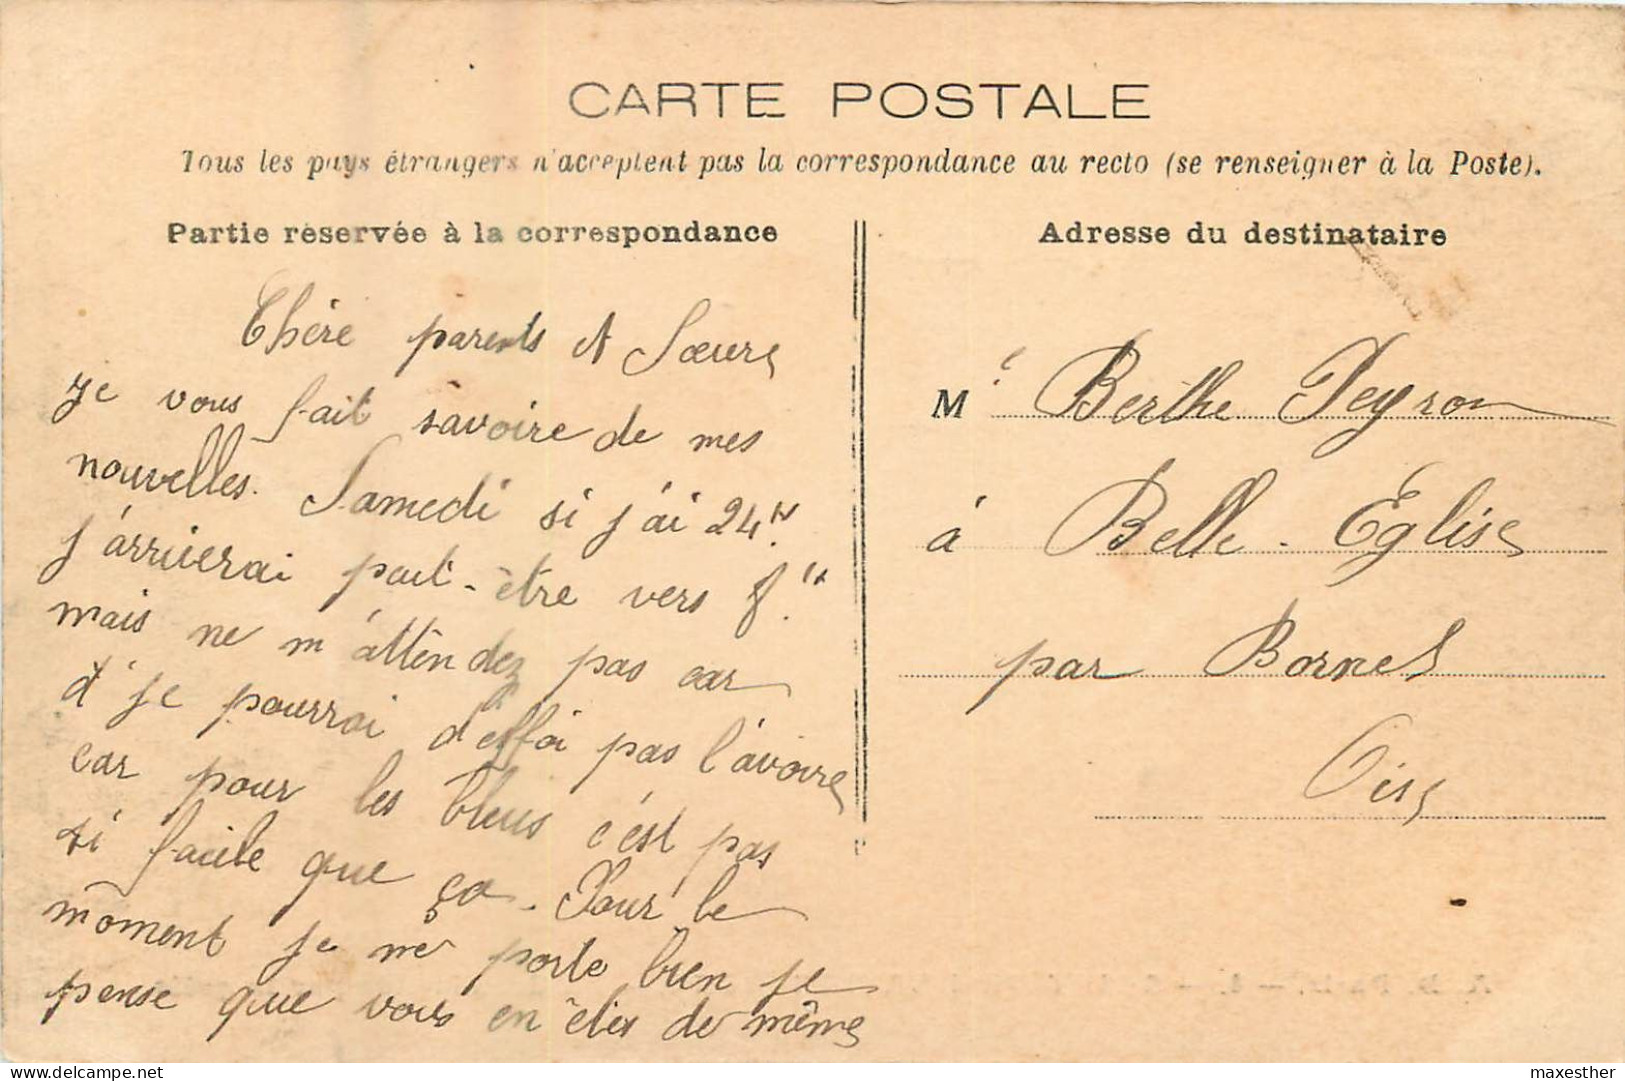 CARTE POSTALE
Tous les pays étrangers n'acceptent pas la correspondance au recto (se renseigner à la Poste).
Partie réservée à la correspondance
Chère parents et Sœurs
je vous fait savoire de mes
nouvelles. Samedi si j'ai 24 h.
j'arriverai peut-être vers 8 h.
mais ne m'attendez pas car
je pourrai pas l'avoire
car pour les bleus c'est pas
si facile que ça. Pour le
moment je me porte bien je
pense que vous en êtes de même
Adresse du destinataire
M Berthe Peyron
à Belle-Eglise
par Bornel
Oise
delcampe.net
maxesther